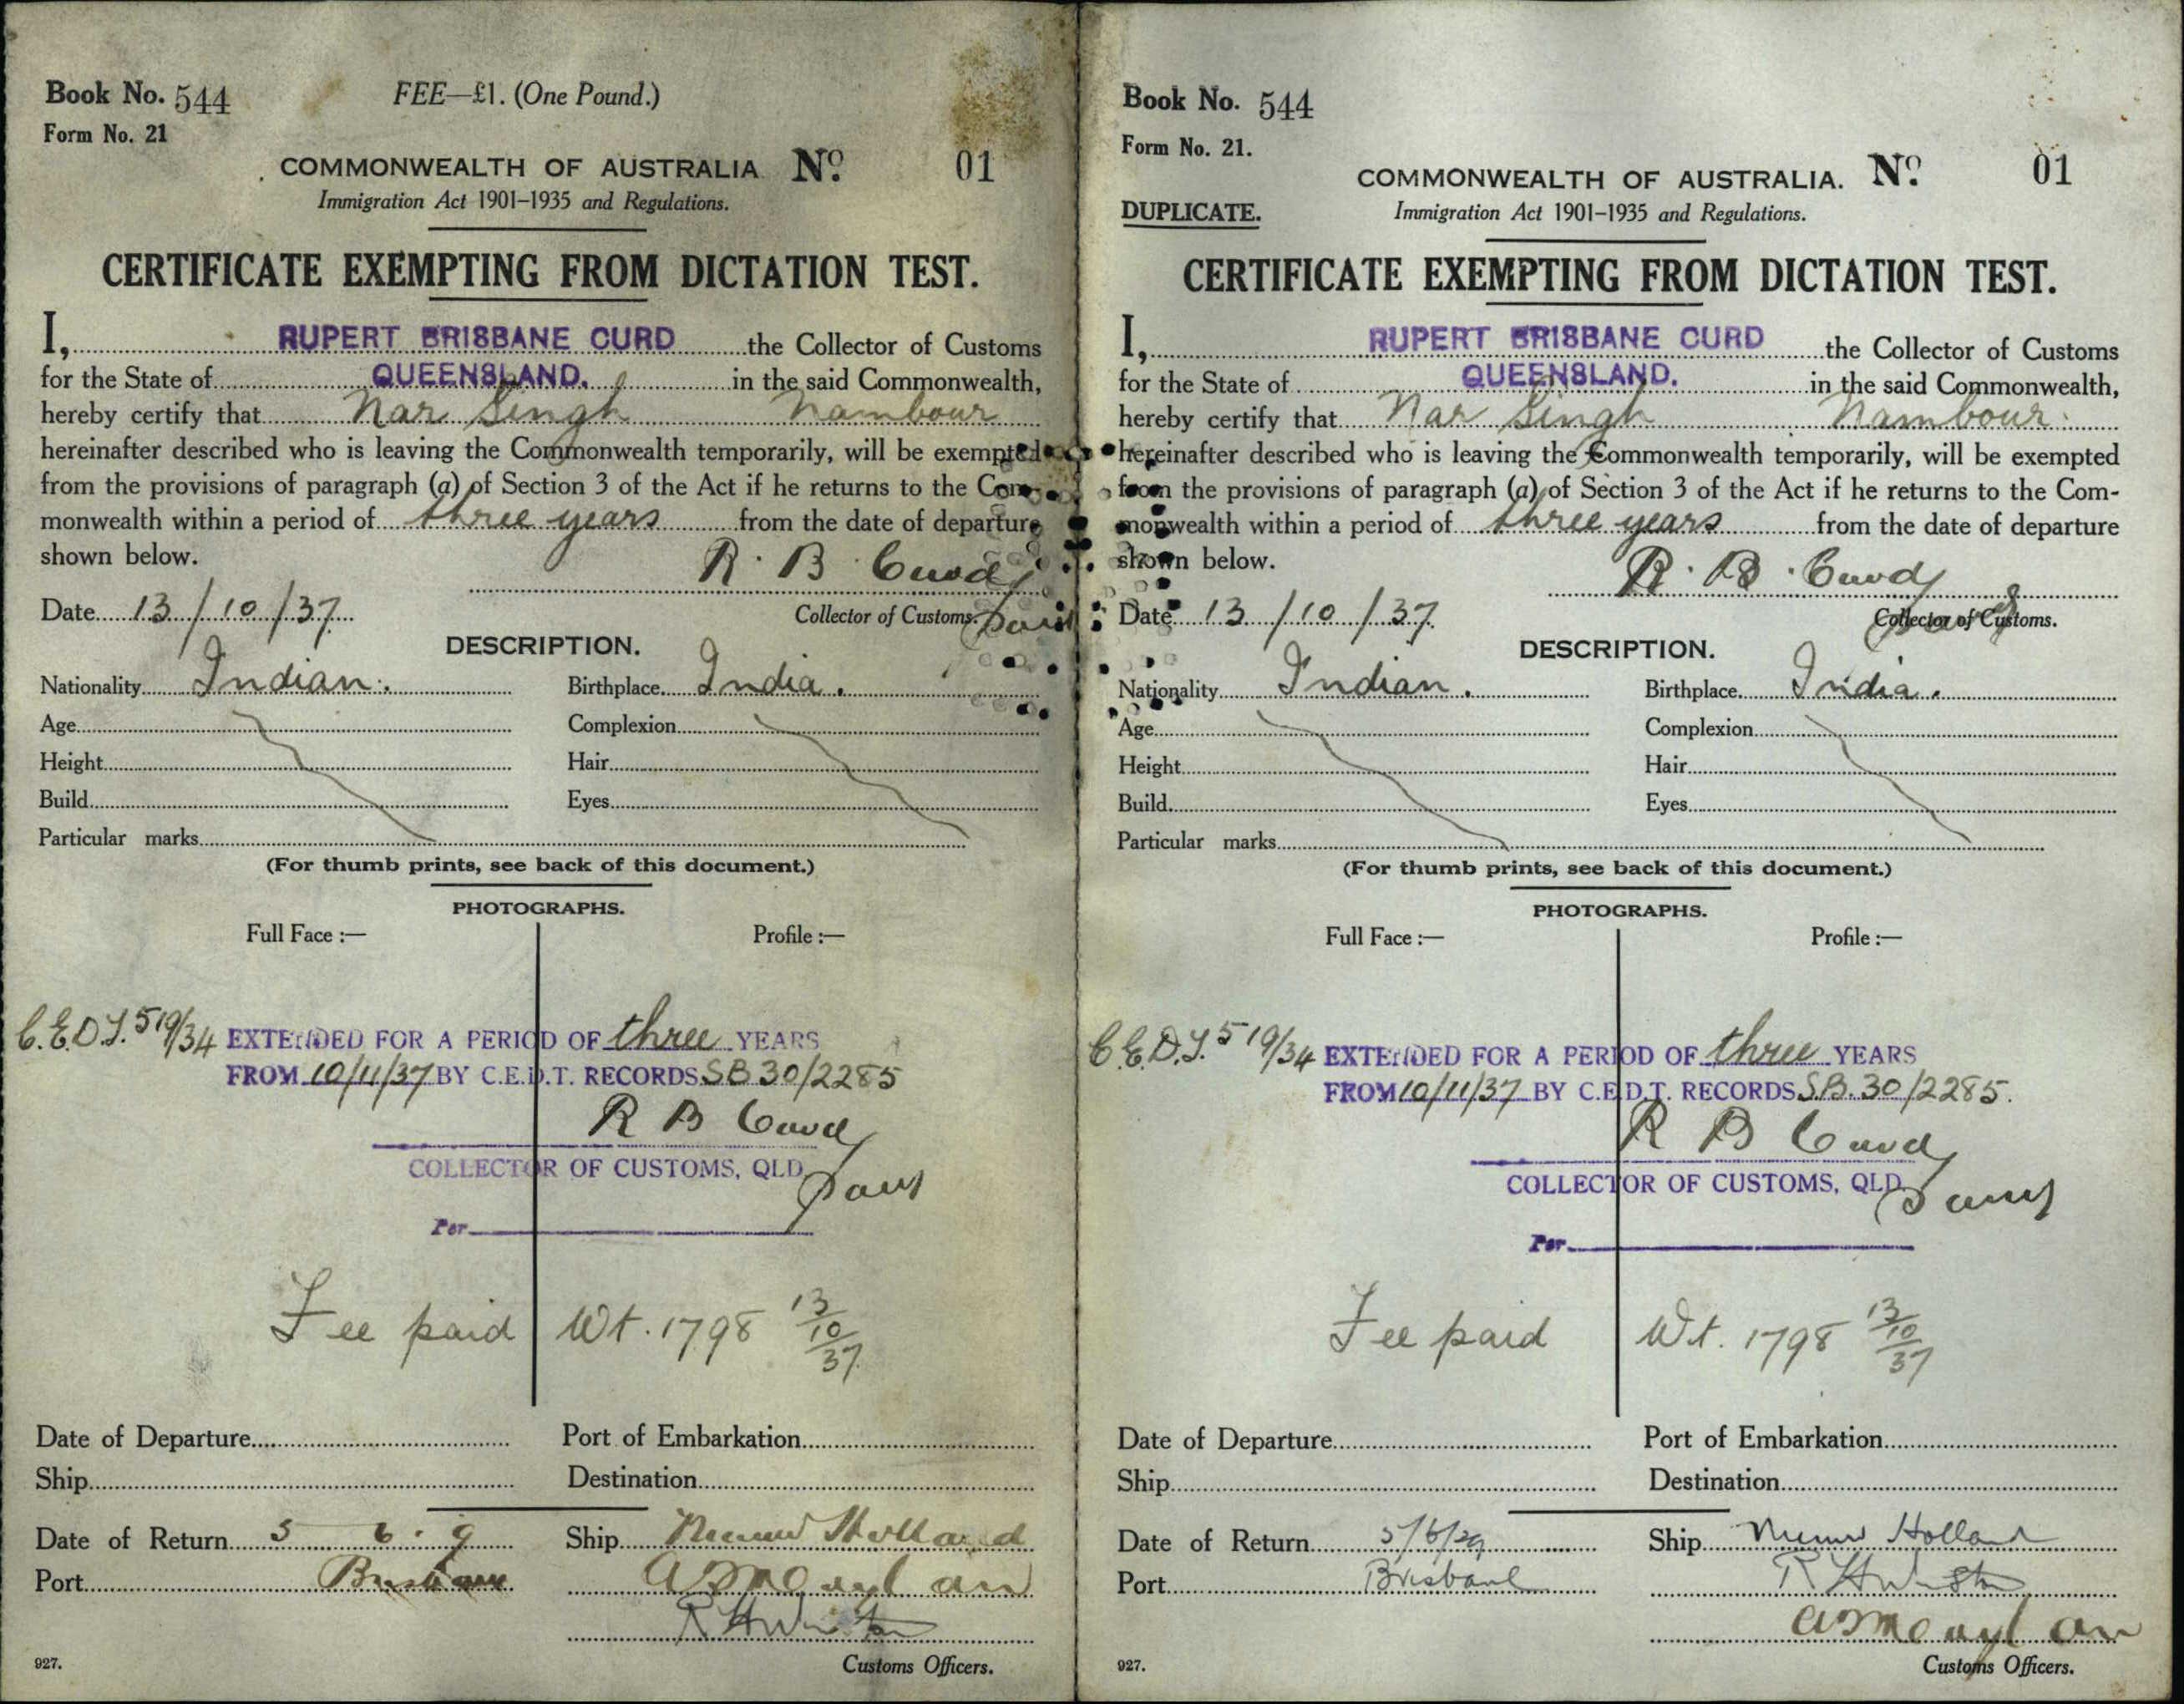 Book No. 544
FEE—£1. (One Pound.)
Form No. 21
COMMONWEALTH OF AUSTRALIA Nº. 01
Immigration Act 1901–1935 and Regulations.
CERTIFICATE EXEMPTING FROM DICTATION TEST.
I, RUPERT BRISBANE CURD the Collector of Customs
for the State of QUEENSLAND. in the said Commonwealth,
hereby certify that Nar Singh Nambour
hereinafter described who is leaving the Commonwealth temporarily, will be exempted
from the provisions of paragraph (a) of Section 3 of the Act if he returns to the Com-
monwealth within a period of three years from the date of departure
shown below.
R. B. Curd
Date 13/10/37
Collector of Customs.
DESCRIPTION.
Nationality Indian. Birthplace India.
Age Complexion
Height Hair
Build Eyes
Particular marks
(For thumb prints, see back of this document.)
PHOTOGRAPHS.
Full Face :— Profile :—
C.E.D.T. 519/34 EXTENDED FOR A PERIOD OF three YEARS
FROM 10/11/37 BY C.E.D.T. RECORDS SB 30/2285
R B Curd
COLLECTOR OF CUSTOMS, QLD
Per
Fee paid Wt. 1798 13/10/37
Date of Departure Port of Embarkation
Ship Destination
Date of Return 5 6 . 9 Ship Holland
Port Brisbane
927. Customs Officers.
Book No. 544
Form No. 21.
COMMONWEALTH OF AUSTRALIA. Nº. 01
DUPLICATE. Immigration Act 1901–1935 and Regulations.
CERTIFICATE EXEMPTING FROM DICTATION TEST.
I, RUPERT BRISBANE CURD the Collector of Customs
for the State of QUEENSLAND. in the said Commonwealth,
hereby certify that Nar Singh Nambour.
hereinafter described who is leaving the Commonwealth temporarily, will be exempted
from the provisions of paragraph (a) of Section 3 of the Act if he returns to the Com-
monwealth within a period of three years from the date of departure
shown below.
R. B. Curd
Date 13/10/37.
Collector of Customs.
DESCRIPTION.
Nationality Indian. Birthplace India.
Age Complexion
Height Hair
Build Eyes
Particular marks
(For thumb prints, see back of this document.)
PHOTOGRAPHS.
Full Face :— Profile :—
C.E.D.T. 519/34 EXTENDED FOR A PERIOD OF three YEARS
FROM 10/11/37 BY C.E.D.T. RECORDS S.B. 30/2285.
R B Curd
COLLECTOR OF CUSTOMS, QLD
Per
Fee paid Wt. 1798 13/10/37
Date of Departure Port of Embarkation
Ship Destination
Date of Return 5/6/39 Ship Holland
Port Brisbane
927. Customs Officers.